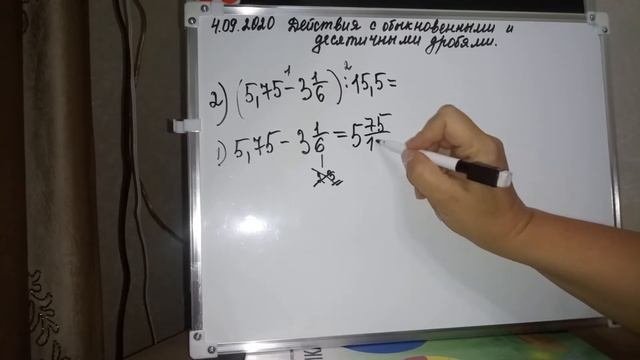 4.09.2020 Действия с обыкновенными и
десятичными дробями.
1 2
2) (5,75 - 3 1/6) : 15,5 =
1) 5,75 - 3 1/6 = 5 75/1